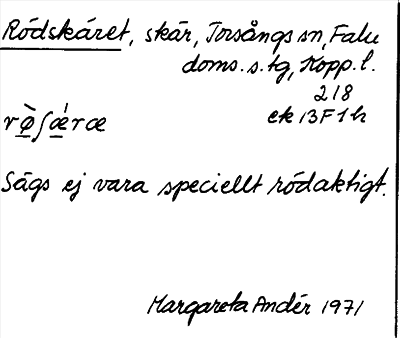 Rödskäret, skär, Torsångs sn, Falu
doms.s.tg, Kopp.l.
218
ek 13F1h
rø̀ʃǽræ
Sägs ej vara speciellt rödaktigt.
Margareta Andér 1971